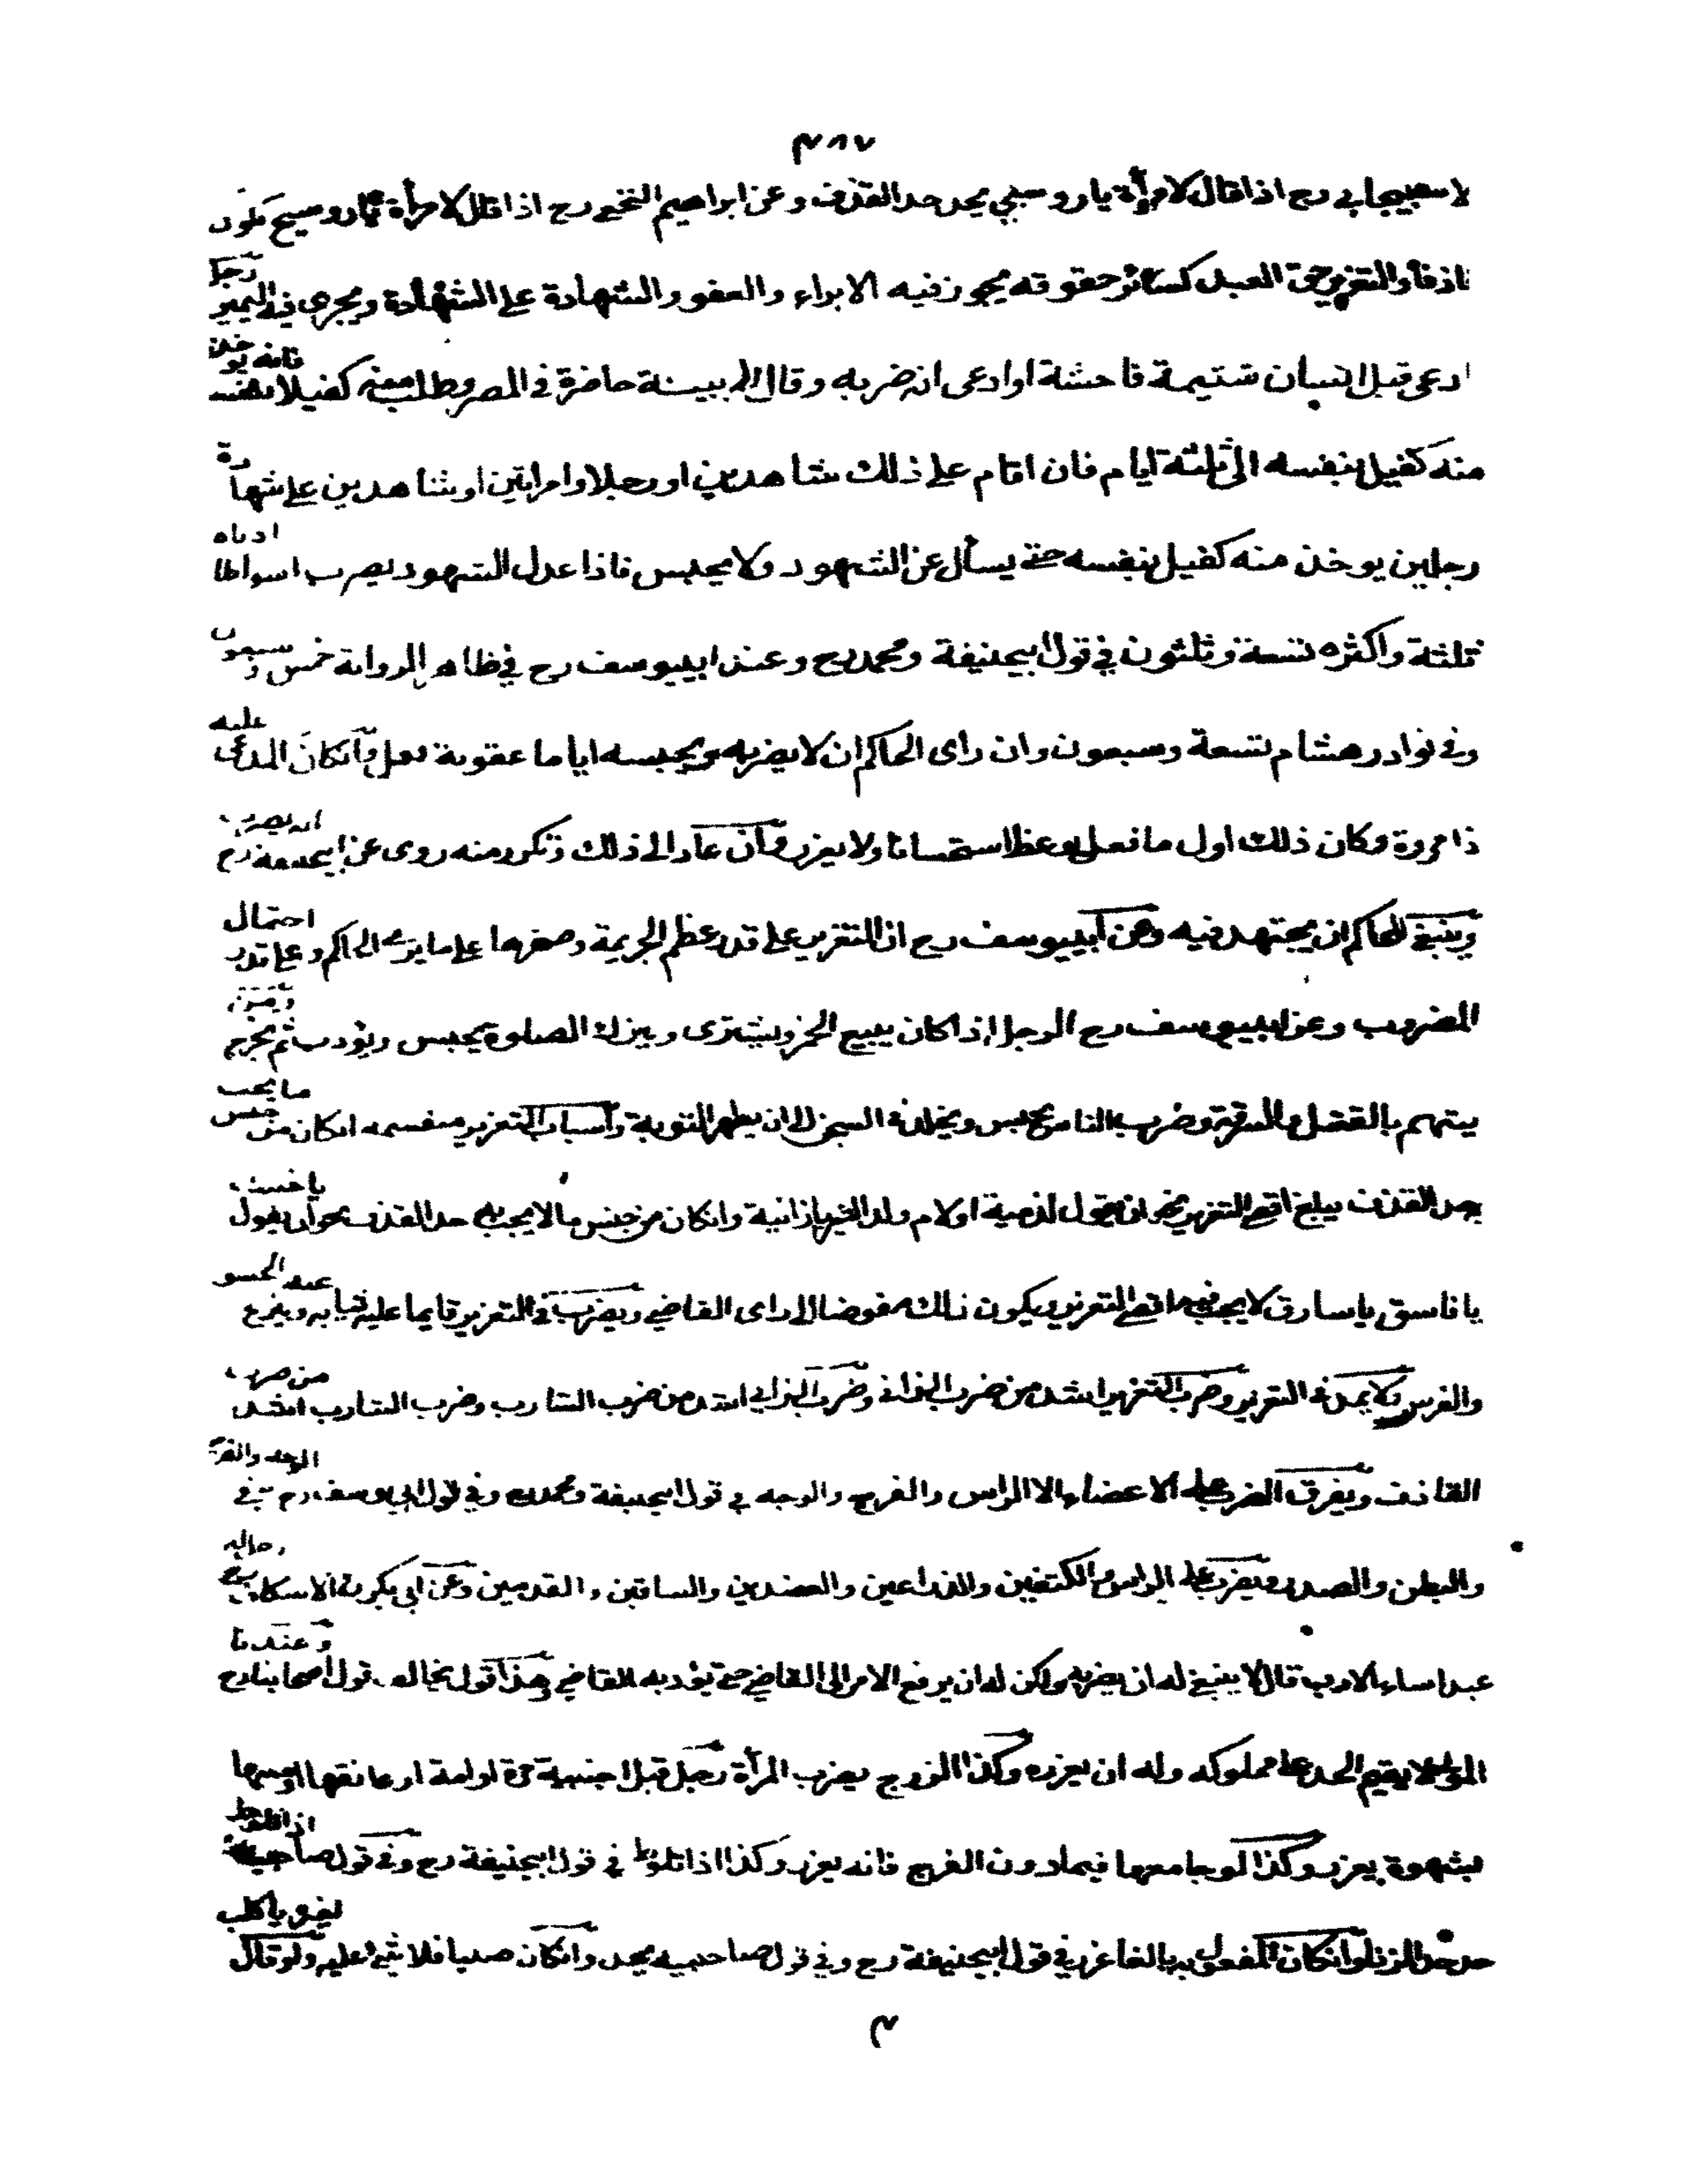 ٣٨٧
لاسبيجابي رح اذا قال لامرأة يا روسبي يحد حد القذف وعن ابراهيم النخعي رح اذا قال لامرأة يا روسبيح يكون
قاذفا والتعزير حق العبد كسائر حقوقه يجوز فيه الابراء والعفو والشهادة على الشهادة ويجرى فيه اليمين رجل
ادعى قبل انسان شتيمة فاحشة او ادعى انه ضربه وقال لي بينة حاضرة في المصر وطلب منه كفيلا بنفسه فانه يوخذ
منه كفيل بنفسه الى ثلثة ايام فان اقام على ذلك شاهدين او رجلا وامراتين او شاهدين على شهادة
رجلين يوخذ منه كفيل بنفسه حتى يسأل عن الشهود ولا يحبس فاذا عدل الشهود يضرب اسواطا ادناه
ثلثة واكثره تسعة وثلثون في قول ابيحنيفة ومحمد رح وعند ابييوسف رح في ظاهر الرواية خمس وسبعون
وفي نوادر هشام تسعة وسبعون وان راى الحاكم ان لا يضربه ويحبسه اياما عقوبة فعل وان كان المدعى عليه
ذا مروة وكان ذلك اول ما فعل يوعظ استحسانا ولا يعزر وان عاد الى ذلك وتكرر منه روى عن ابيحنيفة رح انه يضرب
وينبغي للحاكم ان يجتهد فيه وعن ابييوسف رح ان التعزير على قدر عظم الجريمة وصغرها على ما يرى الحاكم وعلى قدر احتمال
المضروب وعن ابييوسف رح الرجل اذا كان يبيع الخمر ويشترى ويترك الصلوة يحبس ويؤدب ثم يخرج ومن
يتهم بالقتل والسرقة وضرب الناس يحبس ويخلد في السجن الى ان يظهر التوبة واسباب التعزير منقسمه ان كان من جنس ما يجب
به حد القذف يبلغ اقصى التعزير نحو ان يقول لذمية او لام ولد الغير يا زانية وان كان من جنس ما لا يجب به حد القذف نحو ان يقول يا خبيث
يا فاسق يا سارق لا يجب فيه اقصى التعزير ويكون ذلك مفوضا الى راى القاضي ويضرب في التعزير قايما عليه ثيابه وينزع عنه الحشو
والفرو ولا يمد في التعزير وضرب التعزير اشد من ضرب الزاني وضرب الزاني اشد من ضرب الشارب وضرب الشارب اشد من ضرب
القاذف ويفرق الضرب على الاعضاء الا الراس والفرج والوجه في قول ابيحنيفة ومحمد رح وفي قول ابي يوسف رح يتقى الوجه والفرج
والبطن والصدر ويضرب على الراس والكتفين والذراعين والعضدين والساقين والقدمين وعن ابي بكر الاسكاف رح رجل له
عبد اساء الادب قال لا ينبغي له ان يضربه ولكن له ان يرفع الامر الى القاضي حتى يؤدبه القاضي وهذا قول يخالف قول اصحابنا رح وعندنا
المولى لا يقيم الحد على مملوكه وله ان يعزره وكذا الزوج يضرب المرأة رجل قبل اجنبية حرة او امة او عانقها او مسها
بشهوة يعزر وكذا لو جامعها فيما دون الفرج فانه يعزر وكذا اذا تلوط في قول ابيحنيفة رح وفي قول صاحبيه اذا تلوط
حد حد الزنا وان كان المفعول به بالغا عزر في قول ابيحنيفة رح وفي قول صاحبيه يحد وان كان صبيا فلا شئ عليه ولو قال لغيره يا كلب
٣